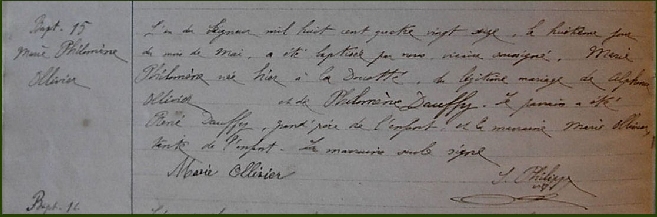 Bapt. 15
Marie Philomène
Ollivier
L'an du Seigneur mil huit cent quatre vingt seize, le huitième jour
du mois de Mai, a été baptisée par nous, vicaire soussigné, Marie
Philomène née hier à la du légitime mariage de Alphonse
Ollivier et de Philomène Dauffy. Le parrain a été
René Dauffy, grand'père de l'enfant et la marraine Marie Ollivier
tante de l'enfant. La marraine seule signe
Marie Ollivier
J. Philippe
Bapt. 16